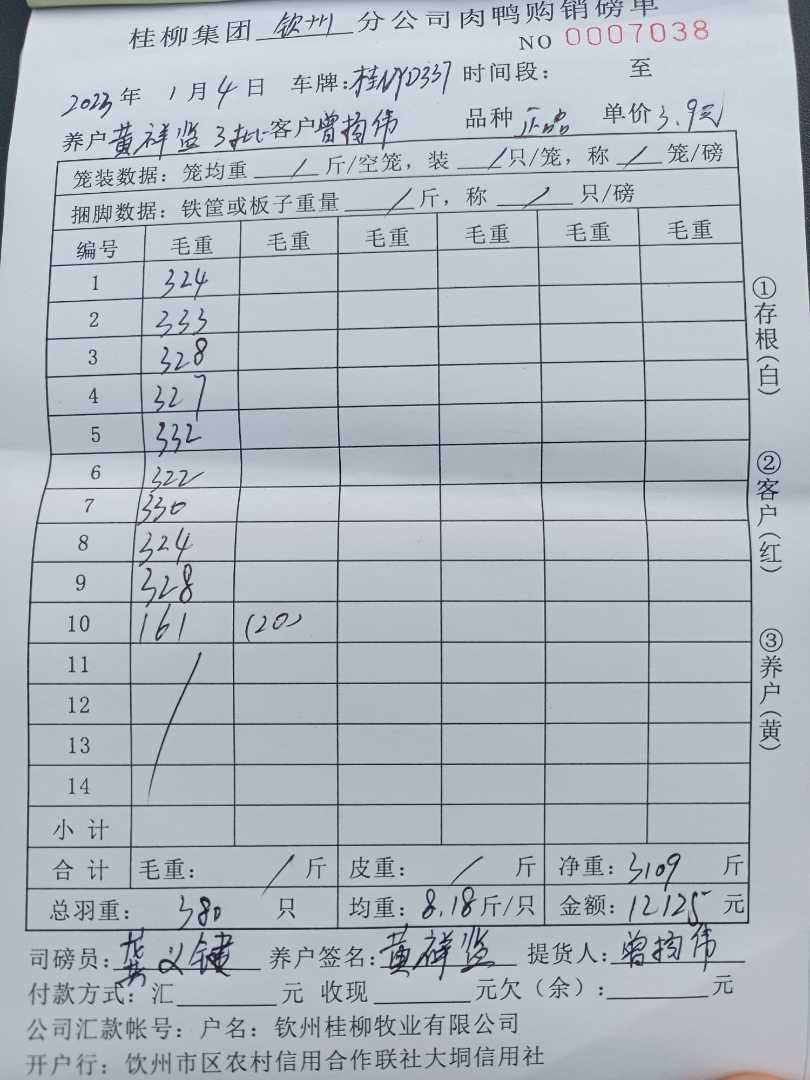 桂柳集团 钦州 分公司肉鸭购销磅单
NO 0007038
2023年 1月4日 车牌:桂NYD337 时间段: 至
养户黄祥监 3批 客户曾扬伟 品种 正品 单价 3.9元
笼装数据:笼均重 / 斤/空笼,装 / 只/笼,称 / 笼/磅
捆脚数据:铁筐或板子重量 / 斤,称 / 只/磅
编号 毛重 毛重 毛重 毛重 毛重 毛重
1 324
2 333
3 328
4 327
5 332
6 322
7 330
8 324
9 328
10 161 (20)
11
12
13
14
小计
合计 毛重: / 斤 皮重: / 斤 净重:3109 斤
总羽重: 380 只 均重:8.18斤/只 金额:12125元
司磅员:龚义键 养户签名:黄祥监 提货人:曾扬伟
付款方式:汇 元 收现 元欠(余): 元
公司汇款帐号:户名:钦州桂柳牧业有限公司
开户行:钦州市区农村信用合作联社大垌信用社
①存根(白)
②客户(红)
③养户(黄)